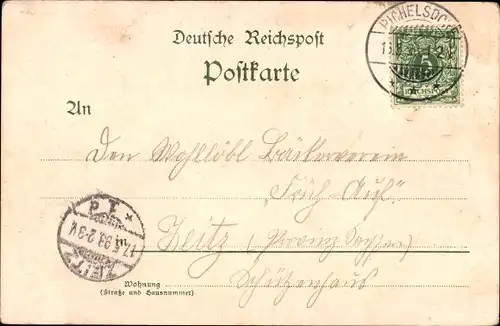 Deutsche Reichspost
Postkarte
PICHELSDORF
5
REICHSPOST
An
Den Wohllöbl Bäckerverein
„Früh-Auf“
in
Zeitz (Provinz Sachsen)
Schützenhaus
ZEITZ
17.5.99.2-3N.
Wohnung
(Straße und Hausnummer)